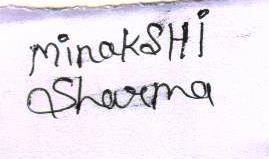 MinakSHi
Sharma